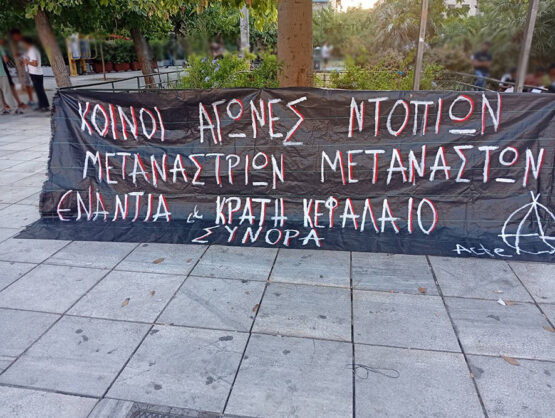 ΚΟΙΝΟΙ ΑΓΩΝΕΣ ΝΤΟΠΙΩΝ
ΜΕΤΑΝΑΣΤΡΙΩΝ ΜΕΤΑΝΑΣΤΩΝ
ΕΝΑΝΤΙΑ ΚΡΑΤΗ ΚΕΦΑΛΑΙΟ
ΣΥΝΟΡΑ
Acte